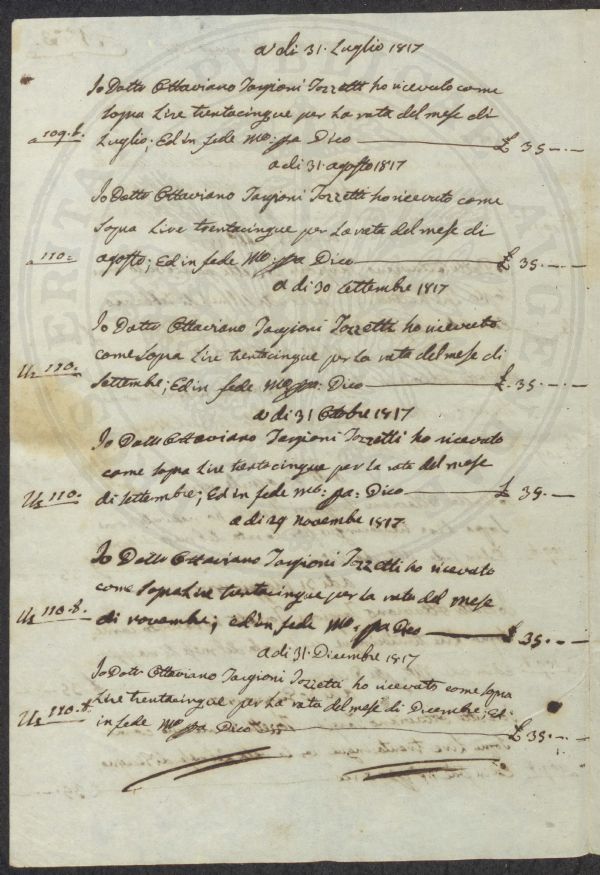 a di 31. Luglio 1817
Io Dottr Ottaviano Targioni Tozzetti ho ricevuto come
sopra Lire trentacinque per La rata del mese di
a 109. t. Luglio; Ed in fede Mo: ppa Dico £ 35.-.-
a di 31. agosto 1817
Io Dottr Ottaviano Targioni Tozzetti ho ricevuto come
sopra Lire trentacinque per La rata del mese di
a 110= agosto; Ed in fede Mo: ppa Dico £ 35.-.-
a di 30 Settembre 1817
Io Dottr Ottaviano Targioni Tozzetti ho ricevuto
come sopra Lire trentacinque per La rata del mese di
110. Settembre; Ed in fede Mo ppa: Dico £. 35.-.-
a di 31 Ottobre 1817
Io Dottr Ottaviano Targioni Tozzetti ho ricevuto
come sopra Lire trentacinque per la rata del mese
110. di settembre; Ed in fede mo: pa= Dico £ 35.-
a di 29 Novembre 1817.
Io Dottr Ottaviano Targioni Tozzetti ho ricevuto
come sopra Lire trentacinque per La rata del mese
110. t. di novembre; ed in fede Mo: ppa Dico £ 35.-.-
a di 31. Dicembre 1817
Io Dottr Ottaviano Targioni Tozzetti ho ricevuto come sopra
110. t. Lire trentacinque per La rata del mese di Dicembre; Ed
in fede Mo ppa Dico £ 35.-.-